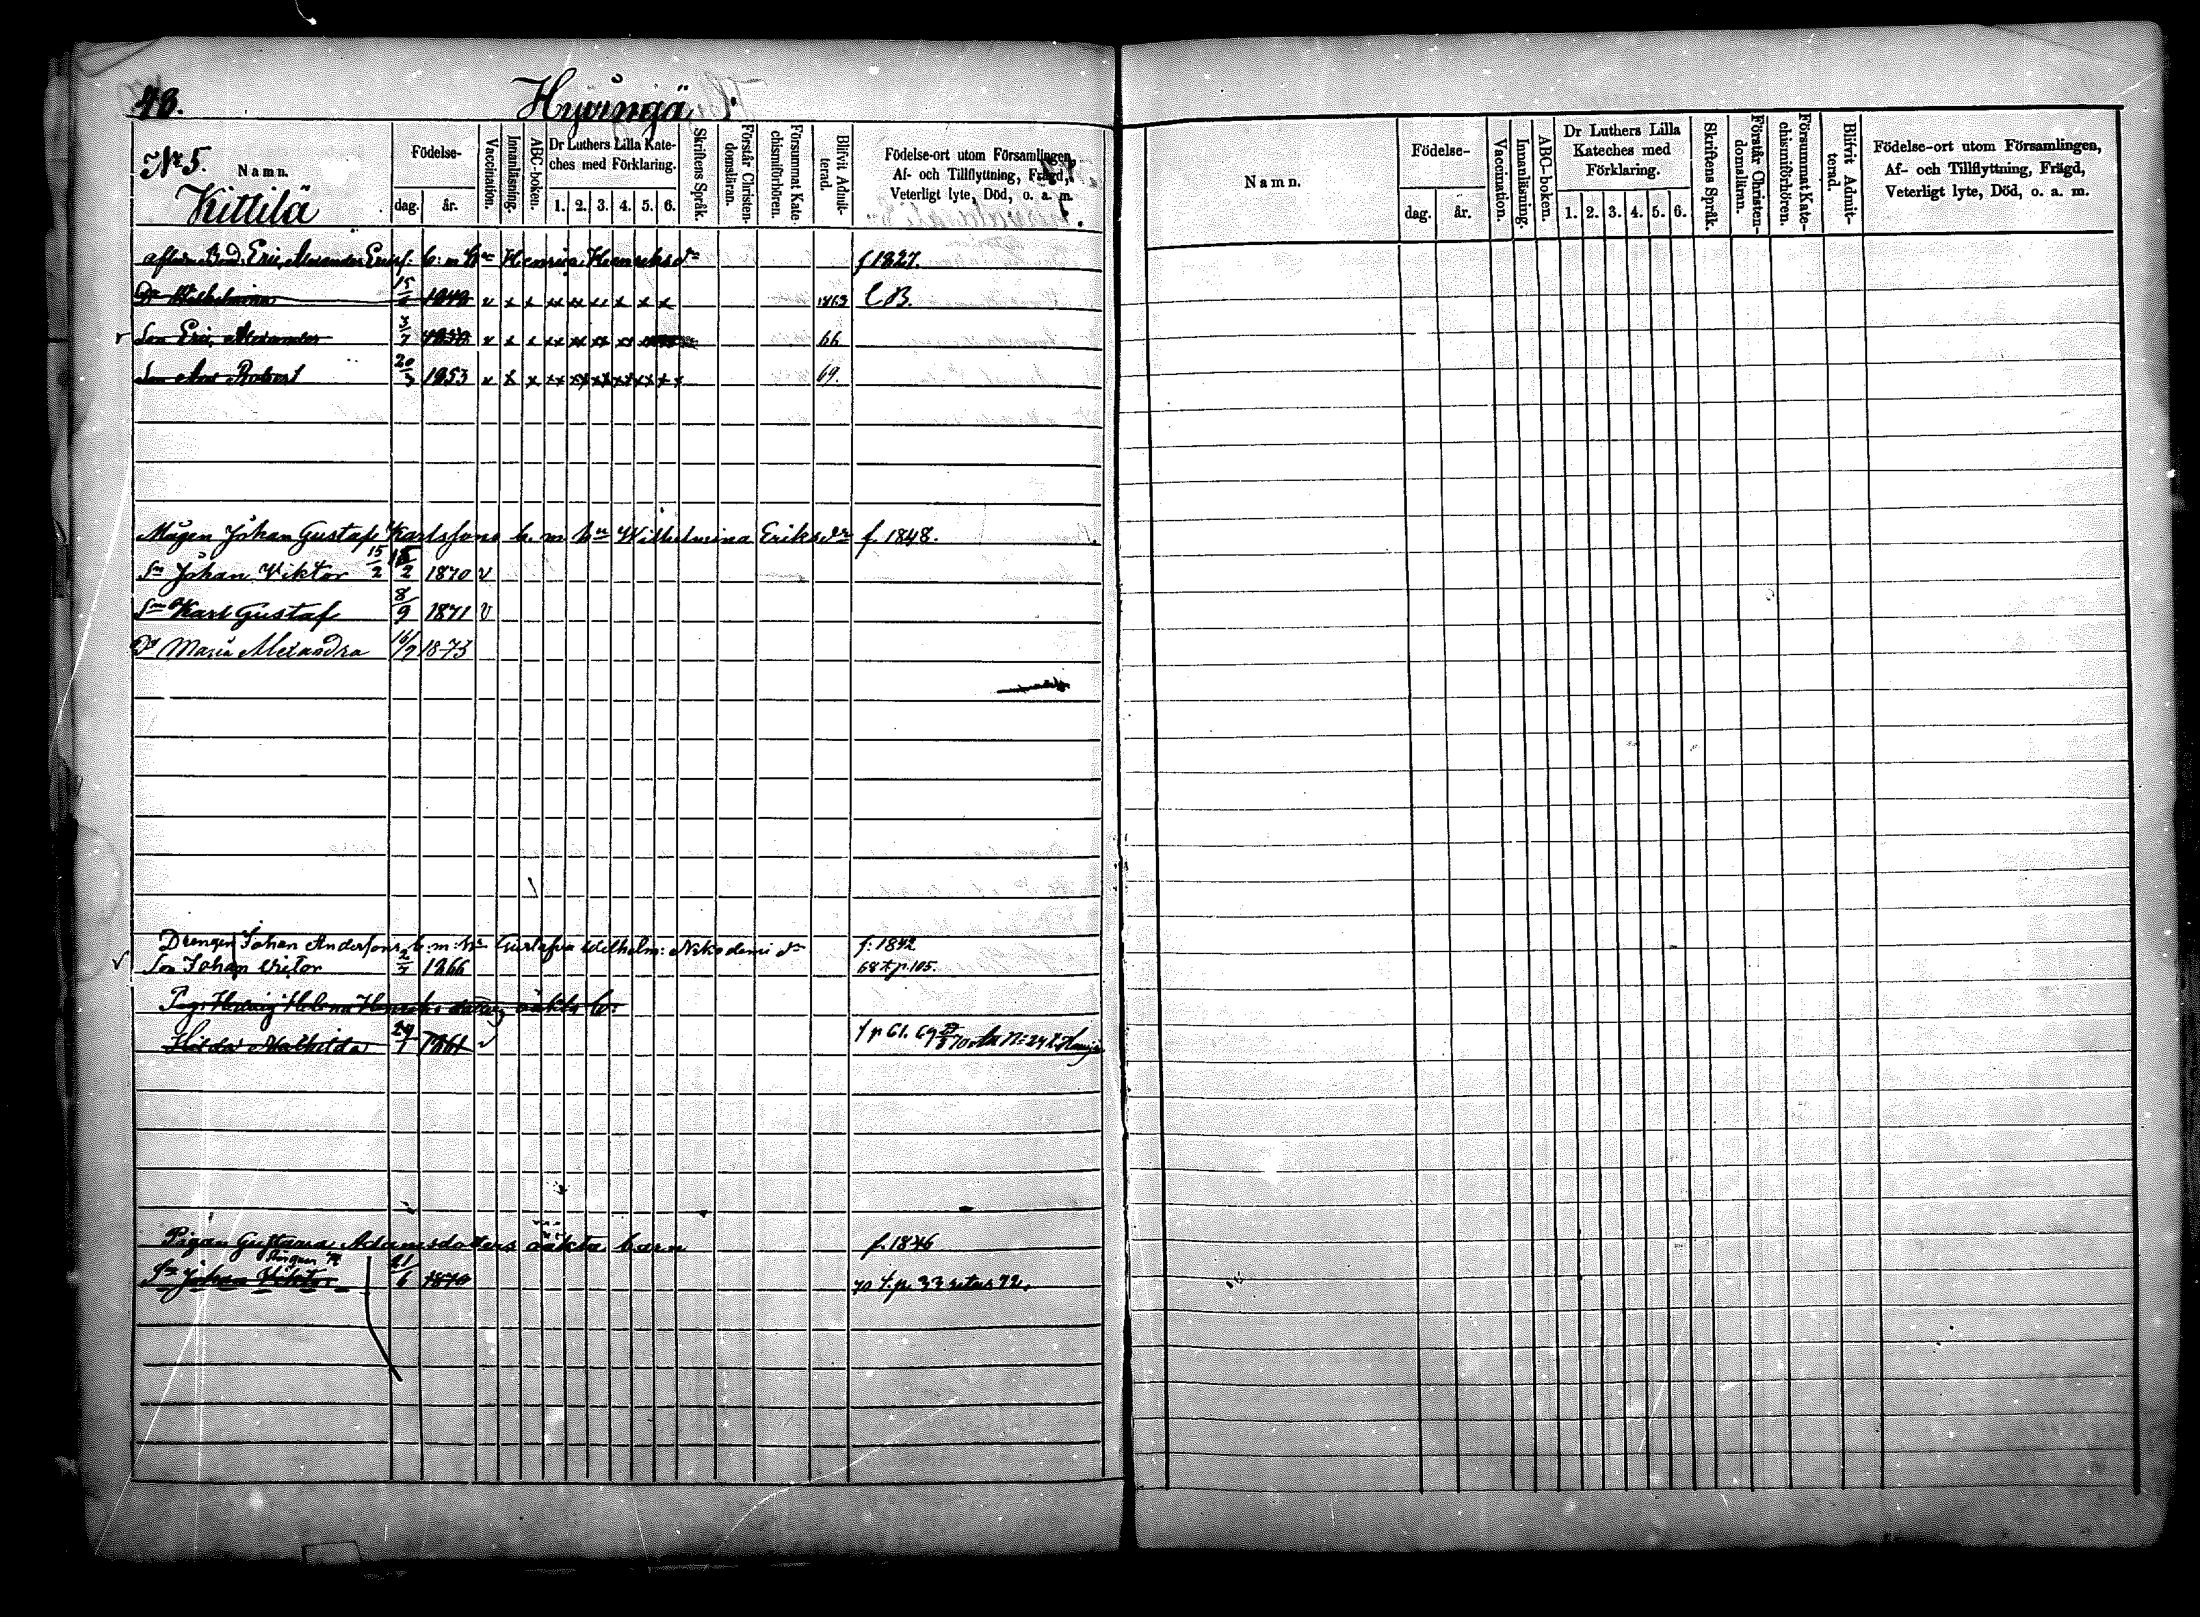 48.
Hyvingä
№ 5.
Namn.
Kittilä
Födelse-
dag. år.
Vaccination.
Innanläsning.
ABC-boken.
Dr Luthers Lilla Kate-
ches med Förklaring.
1. 2. 3. 4. 5. 6.
Skriftens Språk.
Förstår Christen-
domsläran.
Försummat Kate-
chismiförhören.
Blifvit Admit-
terad.
Födelse-ort utom Församlingen,
Af- och Tillflyttning, Frägd,
Veterligt lyte, Död, o. a. m.
Eric Alexander b. m. Henrica Henriksdr f. 1827.
Dr Wilhelmina 1849 v x x xx xx x x x 1862 CB.
Son Eric Alexander 3/7 1850 v x x xx xx xx xx 66
Son Robert 20/3 1853 v x x xx xx xx xx xx xx 69.
Mågen Johan Gustaf Karlssons b. m. Wilhelmina Eriksdr f. 1848.
Sn Johan Viktor 15/2 15/2 1870 v
Sn Karl Gustaf 8/9 1871 v
Dr Maria Alexandra 16/7 1873
Drengen Johan Anderssons b. m. Gustafva Wilhelm: Nikodemi dr f. 1842
Son Johan Victor 1866 68 fr p. 105.
Pig. Helena Henriksdotters oäkta b:
Hilda Mathilda 24/1 1861 v p 61. 69
Pigan Gustava Adamsdotters oäkta barn f. 1846
Sn Johan Viktor 21/6 1870 70 f. p. 33 72.
Namn.
Födelse-
dag. år.
Vaccination.
Innanläsning.
ABC-boken.
Dr Luthers Lilla
Kateches med
Förklaring.
1. 2. 3. 4. 5. 6.
Skriftens Språk.
Förstår Christen-
domsläran.
Försummat Kate-
chismiförhören.
Blifvit Admit-
terad.
Födelse-ort utom Församlingen,
Af- och Tillflyttning, Frägd,
Veterligt lyte, Död, o. a. m.